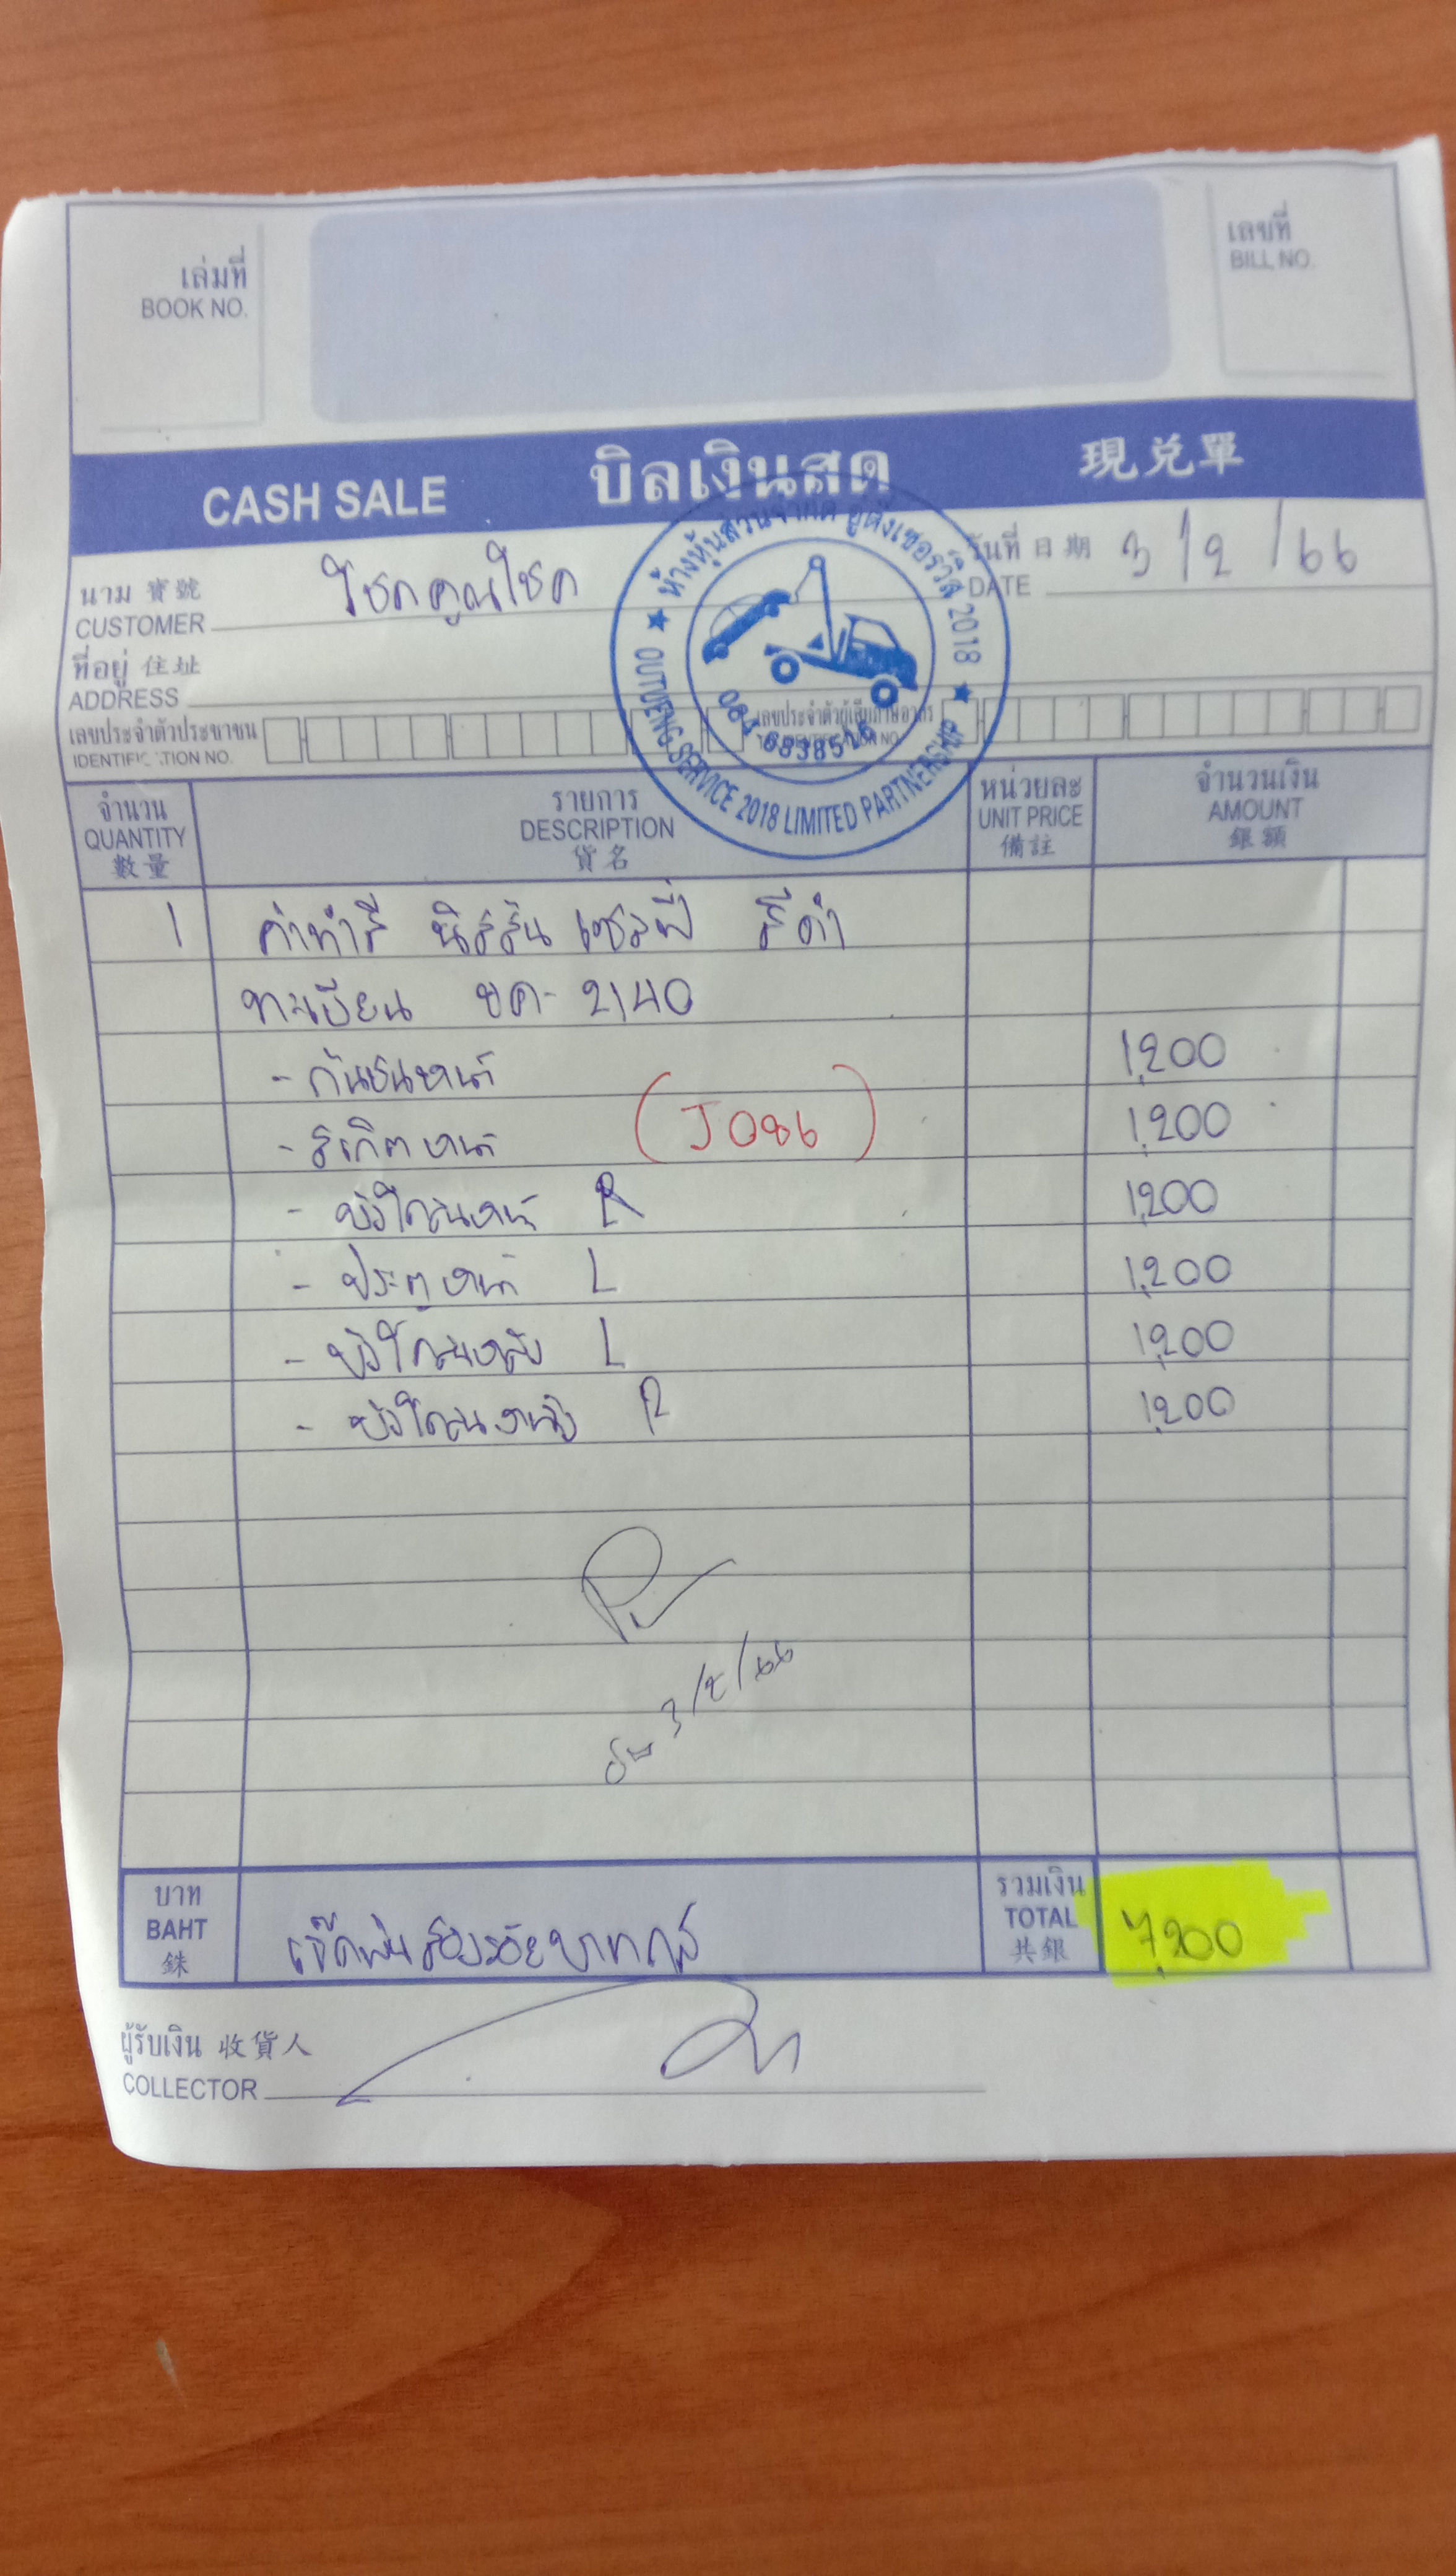 เล่มที่
BOOK NO.
เลขที่
BILL NO.
CASH SALE บิลเงินสด 現兑單
ห้างหุ้นส่วนจำกัด อู่ต้งเซอร์วิส 2018
OUTWENG SERVICE 2018 LIMITED PARTNERSHIP
นาม 寶號 โชคคูณโชค
CUSTOMER
วันที่ 日期 3/2/66
DATE
ที่อยู่ 住址
ADDRESS
เลขประจำตัวประชาชน
IDENTIFICATION NO.
เลขประจำตัวผู้เสียภาษีอากร
TAX IDENTIFICATION NO.
จำนวน รายการ หน่วยละ จำนวนเงิน
QUANTITY DESCRIPTION UNIT PRICE AMOUNT
數量 貨名 備註 銀額
1 ค่าทำสี นิสสัน เซลฟี่ สีดำ
ทะเบียน ขค- 2140
- กันชนหน้า 1,200
- สเกิตหน้า (J086) 1,200
- บังโคลนหน้า R 1,200
- ประตูหน้า L 1,200
- บังโคลนหลัง L 1,200
- บังโคลนหลัง R 1,200
3/2/66
บาท รวมเงิน
BAHT เจ็ดพันสองร้อยบาทถ้วน TOTAL 7,200
銖 共銀
ผู้รับเงิน 收貨人
COLLECTOR